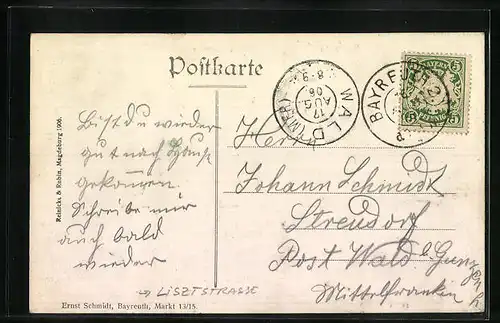 Postkarte
Bist du wieder
gut nach Hause
gekommen.
Schreibe mir
auch bald
wieder
→ LISZTSTRASSE
Ernst Schmidt, Bayreuth, Markt 13/15.
Reinicke & Rubin, Magdeburg 1906.
WALD (MFR)
17
AUG.
06
8-9
BAYREUTH 2
BAYERN
5 5
PFENNIG
Herrn
Johann Schmidt
Streudorf
Post Wald b. Gunzen
Mittelfranken